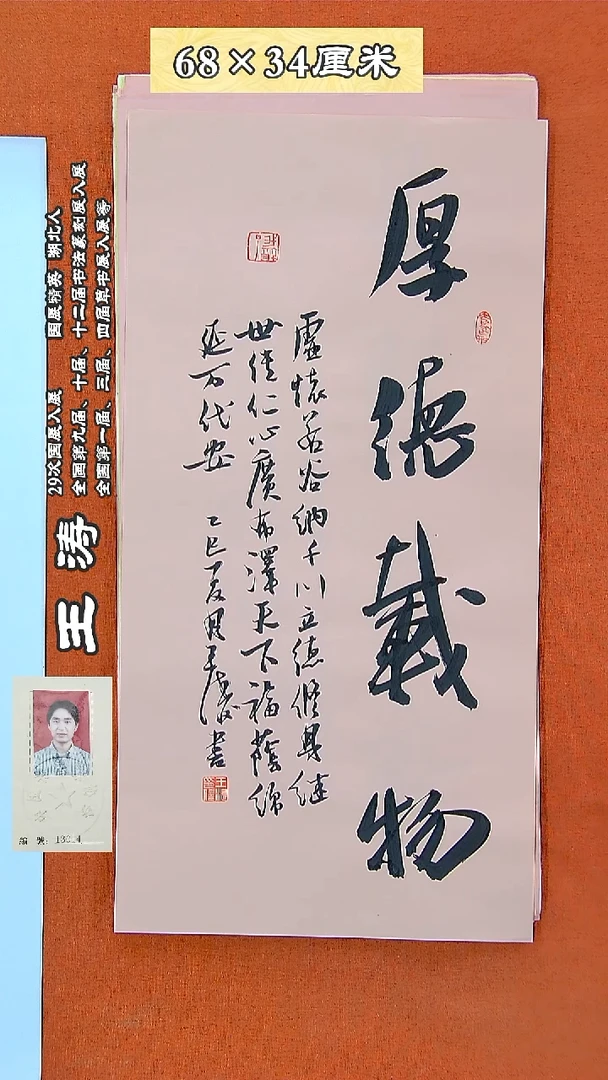 68×34厘米
厚德载物
虚怀若谷纳千川立德修身继
世传仁心广布泽天下福荫绵
延万代安 乙巳夏月王涛书
王涛
29次国展入展 国展精英 湖北人
全国第九届、十届、十二届书法篆刻展入展
全国第一届、三届、四届草书展入展等
编 号：13014